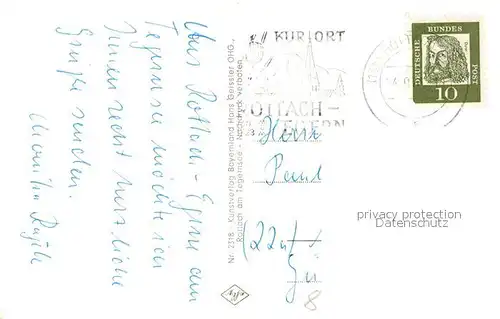 Aus Rottach-Egern am
Tegernsee möchte ich
Ihnen recht herzliche
Grüße senden.
Monika
Nr. 2318 Kunstverlag Bayernland Hans Geissler OHG.,
Rottach am Tegernsee - Nachdruck verboten
KURORT
ROTTACH-
EGERN
DEUTSCHE
BUNDES
POST
10
Herrn
Paul
(22a)
privacy protection
Datenschutz
8